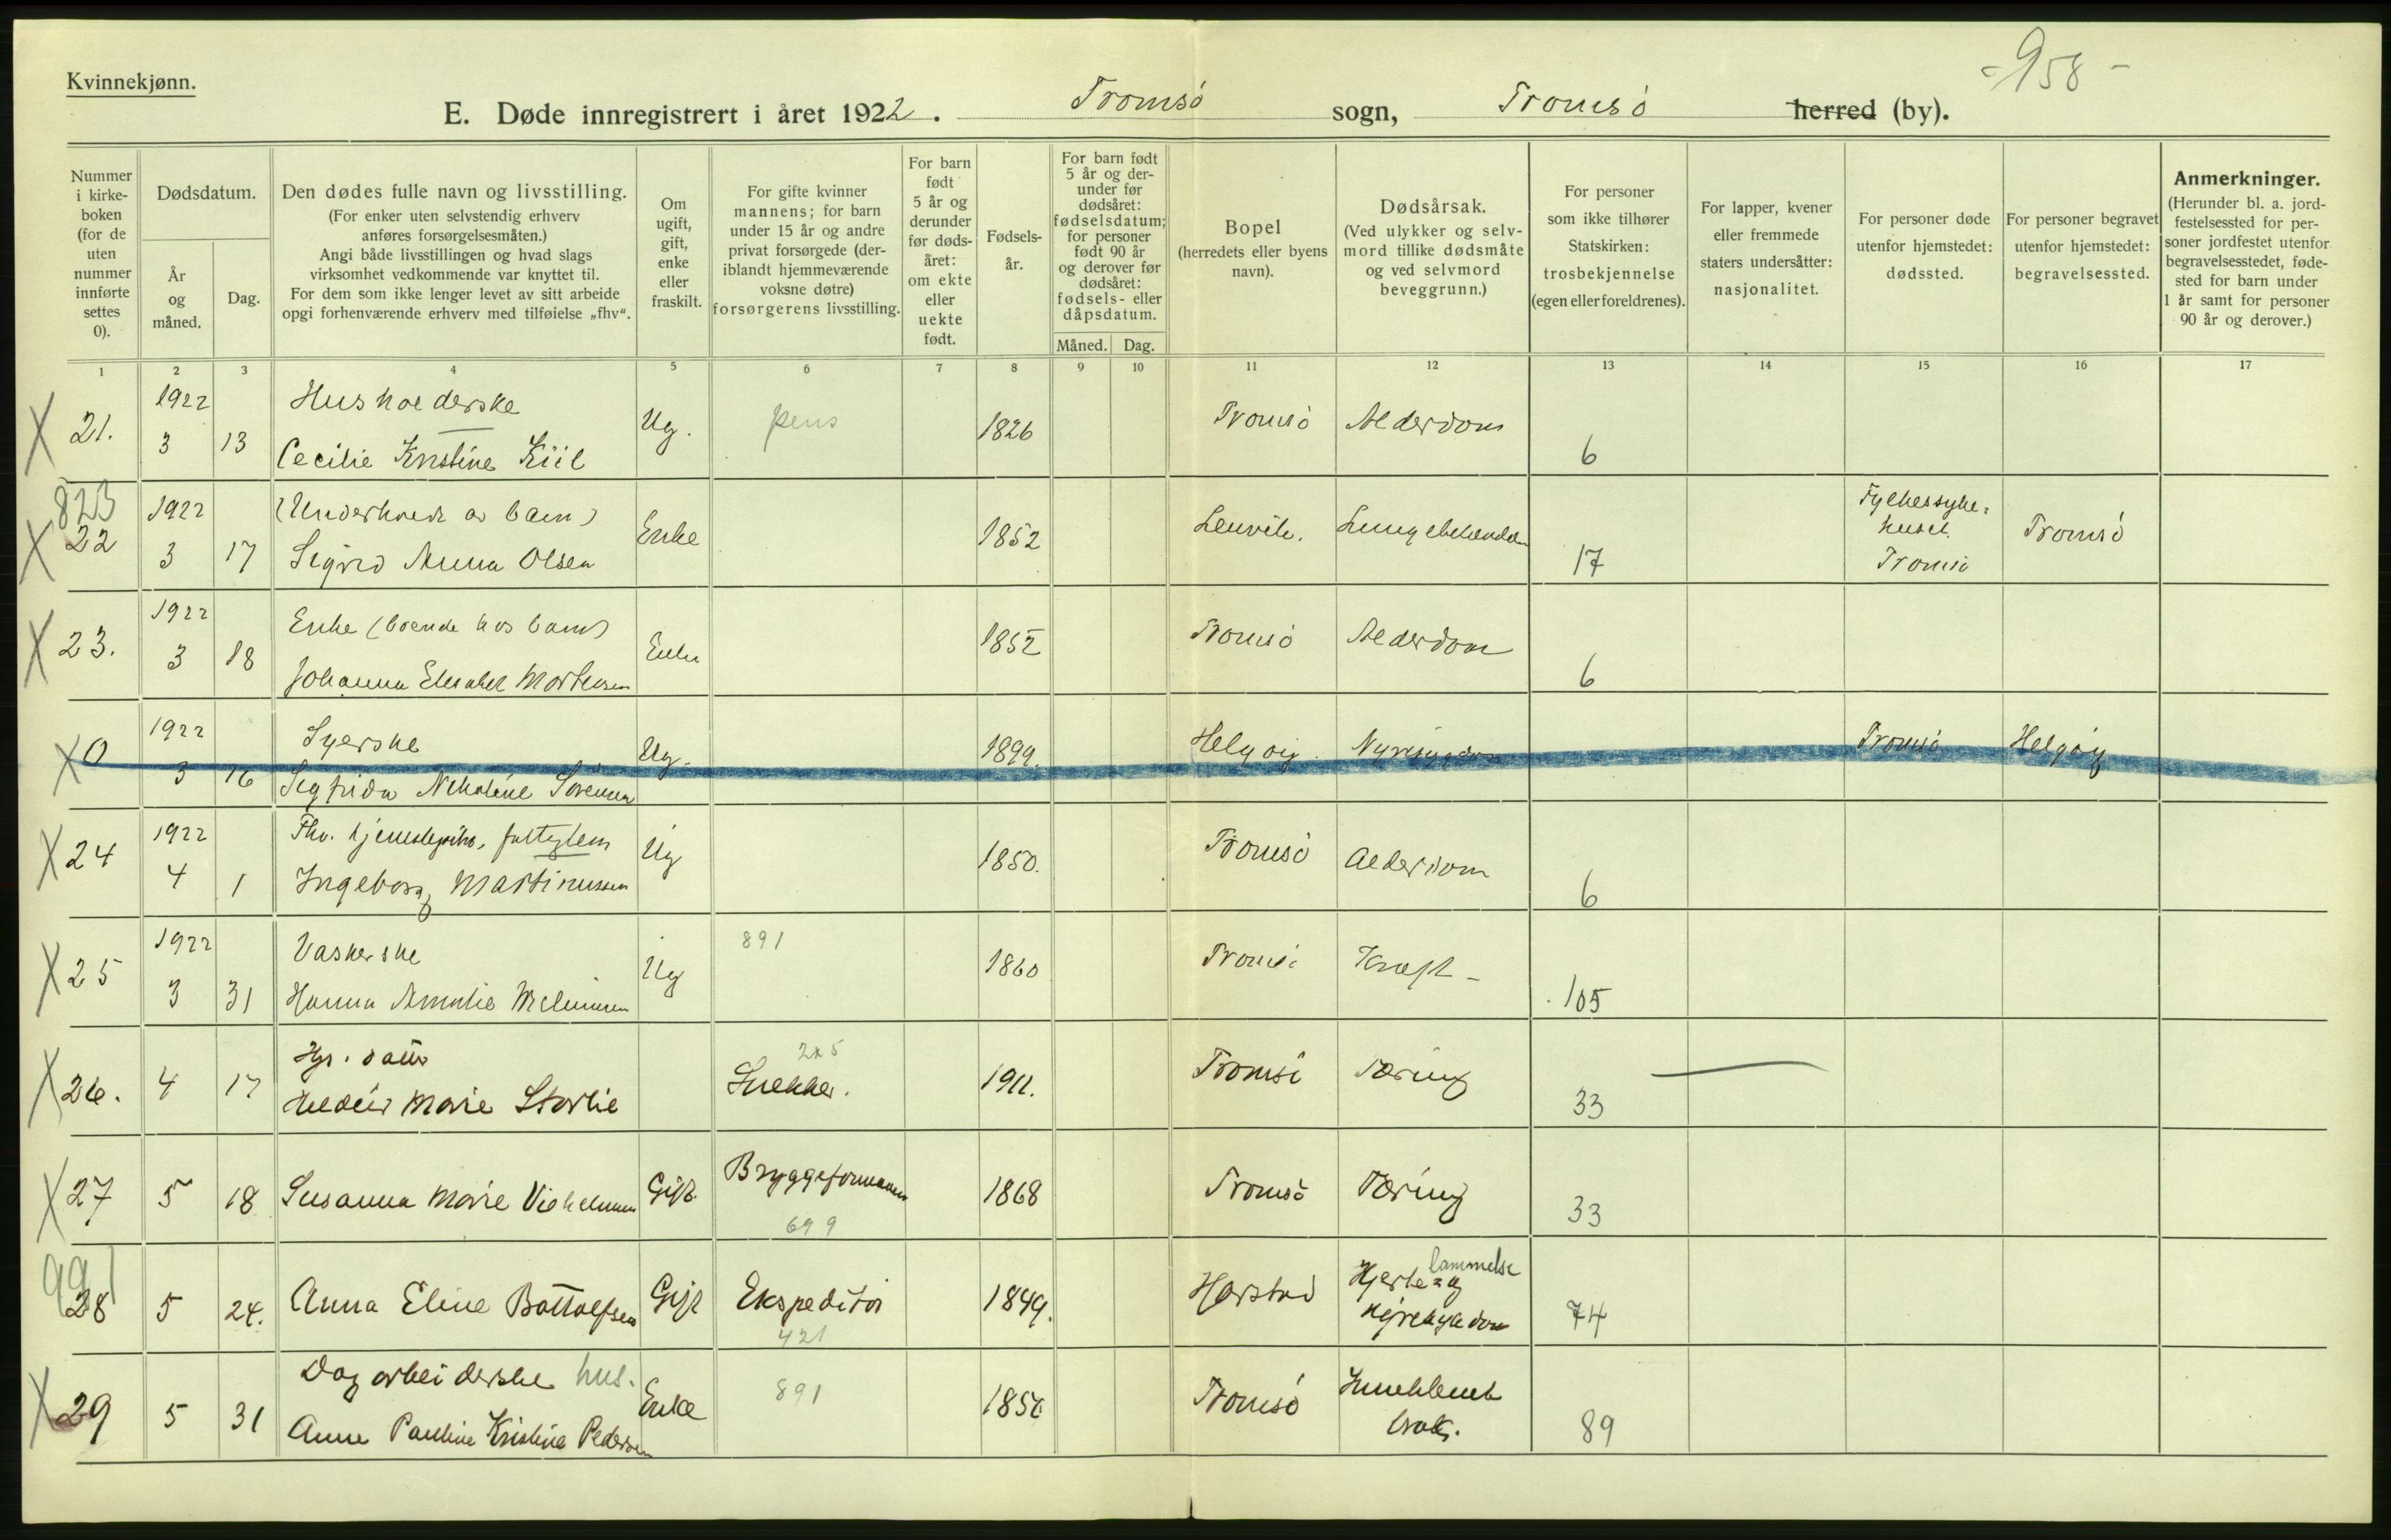 Kvinnekjønn.
- 958 -
E. Døde innregistrert i året 1922. Tromsö sogn, Tromsö herred (by).
Nummer i kirke- boken (for de uten nummer innførte settes 0).
Dødsdatum.
År og måned.
Dag.
Den dødes fulle navn og livsstilling.
(For enker uten selvstendig erhverv
anføres forsørgelsesmåten.)
Angi både livsstillingen og hvad slags
virksomhet vedkommende var knyttet til.
For dem som ikke lenger levet av sitt arbeide
opgi forhenværende erhverv med tilføielse „fhv“.
Om ugift, gift, enke eller fraskilt.
For gifte kvinner
mannens; for barn
under 15 år og andre
privat forsørgede (der-
iblandt hjemmeværende
voksne døtre)
forsørgerens livsstilling.
For barn født 5 år og derunder før døds- året: om ekte eller uekte født.
Fødsels- år.
For barn født
5 år og der-
under før
dødsåret:
fødselsdatum;
for personer
født 90 år
og derover før
dødsåret:
fødsels- eller
dåpsdatum.
Måned. Dag.
Bopel
(herredets eller byens
navn).
Dødsårsak.
(Ved ulykker og selv-
mord tillike dødsmåte
og ved selvmord
beveggrunn.)
For personer
som ikke tilhører
Statskirken:
trosbekjennelse
(egen eller foreldrenes).
For lapper, kvener
eller fremmede
staters undersåtter:
nasjonalitet.
For personer døde
utenfor hjemstedet:
dødssted.
For personer begravet
utenfor hjemstedet:
begravelsessted.
Anmerkninger.
(Herunder bl. a. jord-
festelsessted for per-
soner jordfestet utenfor
begravelsesstedet, føde-
sted for barn under
1 år samt for personer
90 år og derover.)
1 2 3 4 5 6 7 8 9 10 11 12 13 14 15 16 17
1922 Husholderske
X 21. 3 13 Cecilie Kristine Kiil Ug. pens 1826 Tromsö Alderdom 6
823
1922 (Underholdt av barn)
X 22 3 17 Sigrid Anna Olsen Enke 1852 Lenvik. 17 Fylkessyke=
huset
Tromsö Tromsö
1922 Enke (boende hos barn)
X 23. 3 18 Johanna Elisabet Mortensen Enke 1852 Tromsö Alderdom 6
1922 Syerske
X 0 3 16 Sigfrida Nikoline Sörensen Ug. 1899. Helgöy Nyresygdom Tromsö Helgöy
1922 Fhv. tjenestepike, fattiglem
X 24 4 1 Ingeborg Martinussen Ug 1850. Tromsö Alderdom 6
1922 Vaskerske 891
X 25 3 31 Hanna Amalie Ug 1860 Tromsö Kræft - 105
Hjv. datter 2x5
X 26. 4 17 Marie Storlie Snekker. 1911. Tromsö Tæring 33
X 27 5 18 Susanna Marie Vilhelmsen Gift Bryggeformann 1868 Tromsö Tæring 33
699
991
28 5 24. Anna Eline Bottolfsen Gift Ekspeditör 1849. Harstad Hjerte= og lammelse
nyresykdom 74
421
Dagarbeiderske hus.
X 29 5 31 Anne Pauline Kristine Pedersen Enke 891 1850 Tromsö Inneklemt
brok. 89